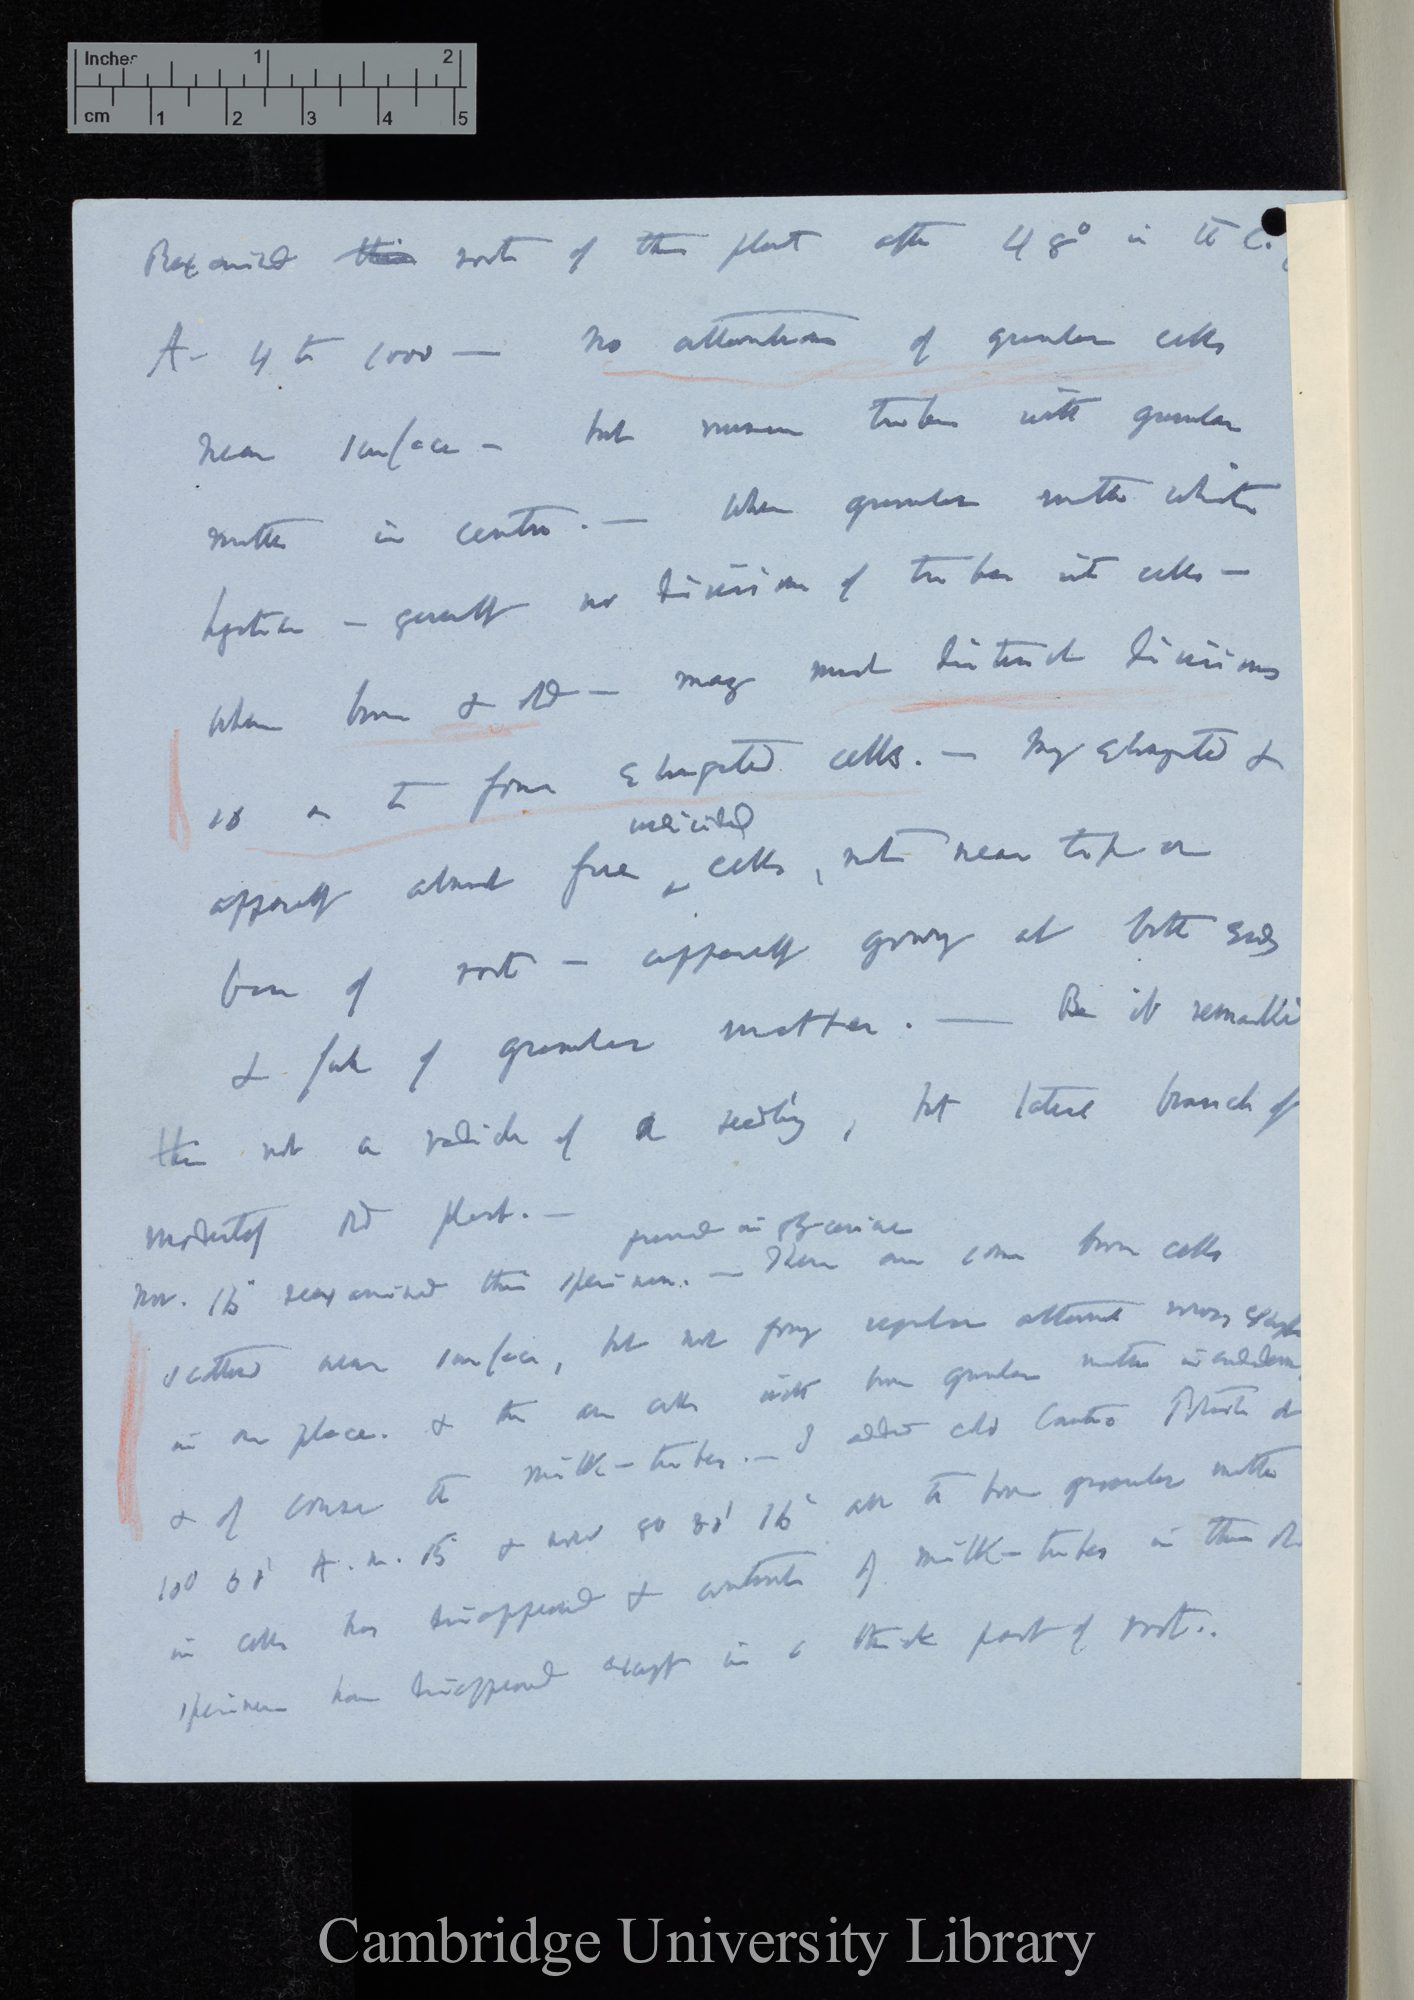 Inches 1 2
cm 1 2 3 4 5
Rexamined this roots of this plant after 48° in the C.
A- 4 to 1000 — No alternations of granular cells
near surface — but numerous tubes with granular
matter in centre. — When granular matter white
hyaline — generally no division of tubes into cells —
when brown & old — may most distinct divisions
so as to form elongated cells. — My elongated &
individual
apparently almost free cells, not near tip or
base of root — apparently growing at both ends
& full of granular matter. — Be it remarked
this not a radicle of a seedling, but lateral branch of
moderately old plant. —
preserved in glycerine
Nov. 16' reexamined this specimen. — There are some brown cells
scattered near surface, but not forming regular alternate rows except
in one place. & there are cells with brown granular matter in
& of course the milk-tubes. — I added Carb of Potash
A.m. & now all the brown granular matter
in cells has disappeared & contents of milk-tubes in this
specimen have disappeared except in a thick part of root..
Cambridge University Library